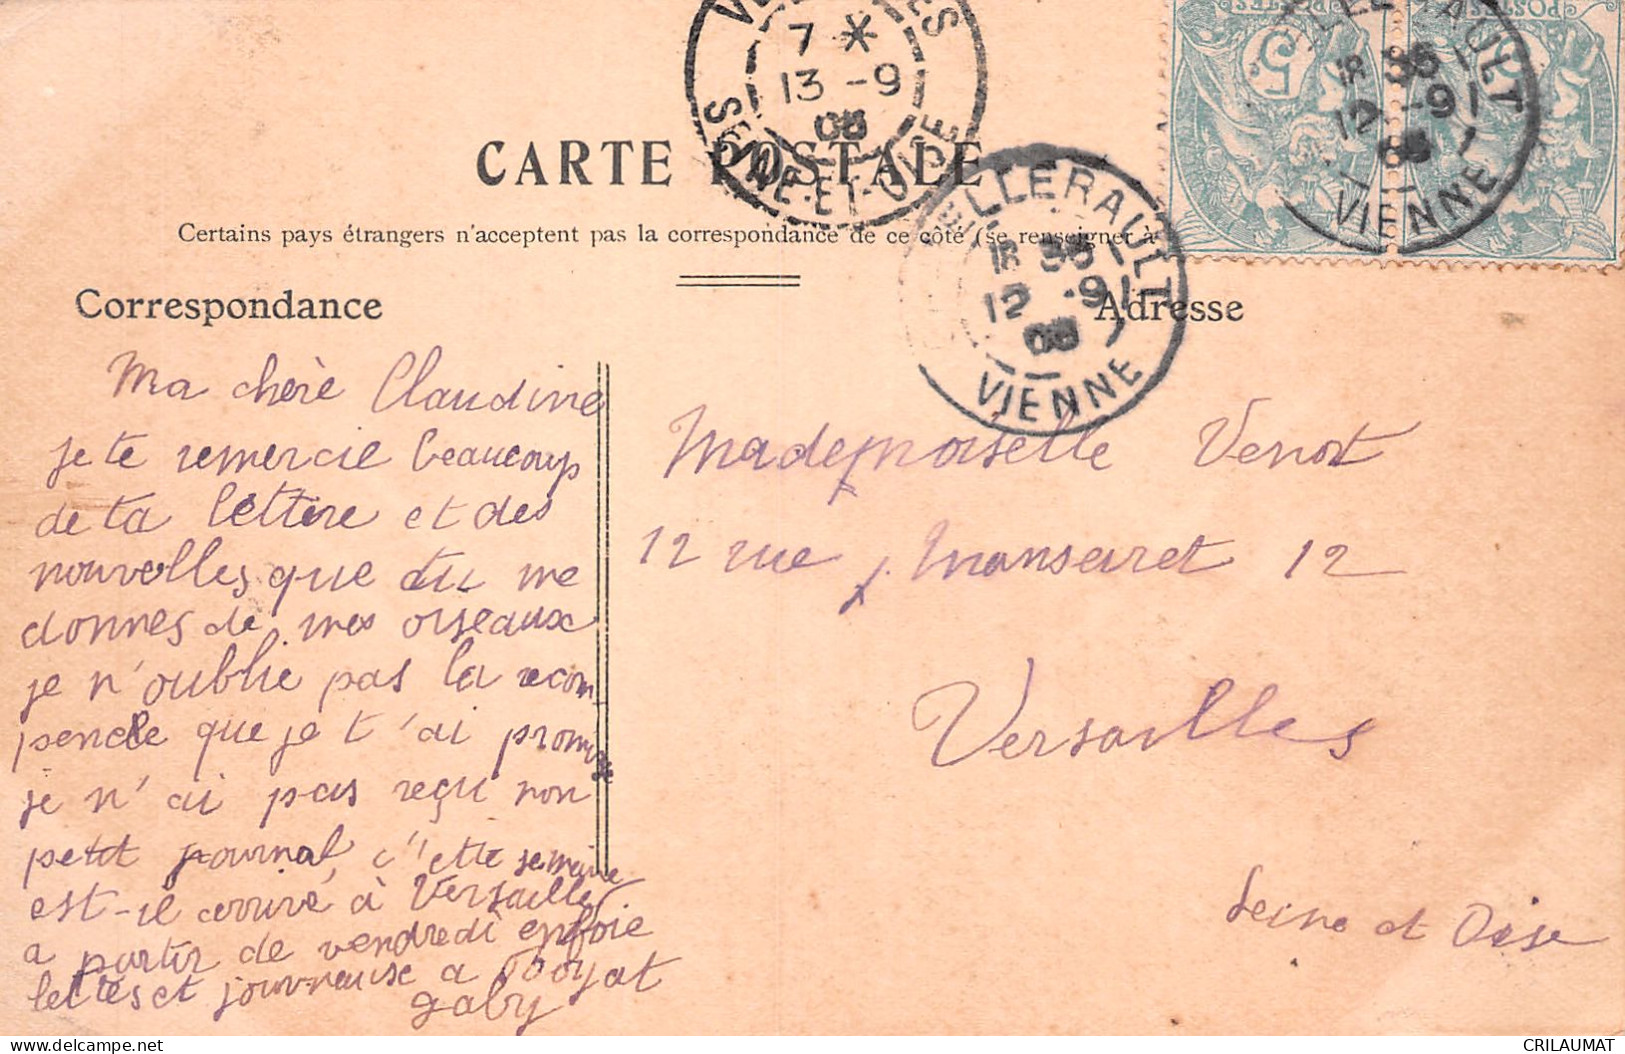 CARTE POSTALE
Certains pays étrangers n'acceptent pas la correspondance de ce côté (se renseigner à
Correspondance
Adresse
Ma chère Claudine
je te remercie beaucoup
de ta lettre et des
nouvelles que tu me
donnes de mes oiseaux
je n'oublie pas la recom
pence que je t'ai promis
je n'ai pas reçu mon
petit journal c'ette semaine
est-il arrivé à Versailles
a partir de vendredi enfoie
lettres et journeuse a Royat
gaby
Mademoiselle Venot
12 rue J. Mansaret 12
Versailles
Seine et Oise
7 *
13 -9
08
SEINE-ET-OISE
CHATELLERAULT
18 35
12 -9
08
VIENNE
LLERAULT
18 35
12 -9
08
VIENNE
POSTES
5
POSTES
CRILAUMAT